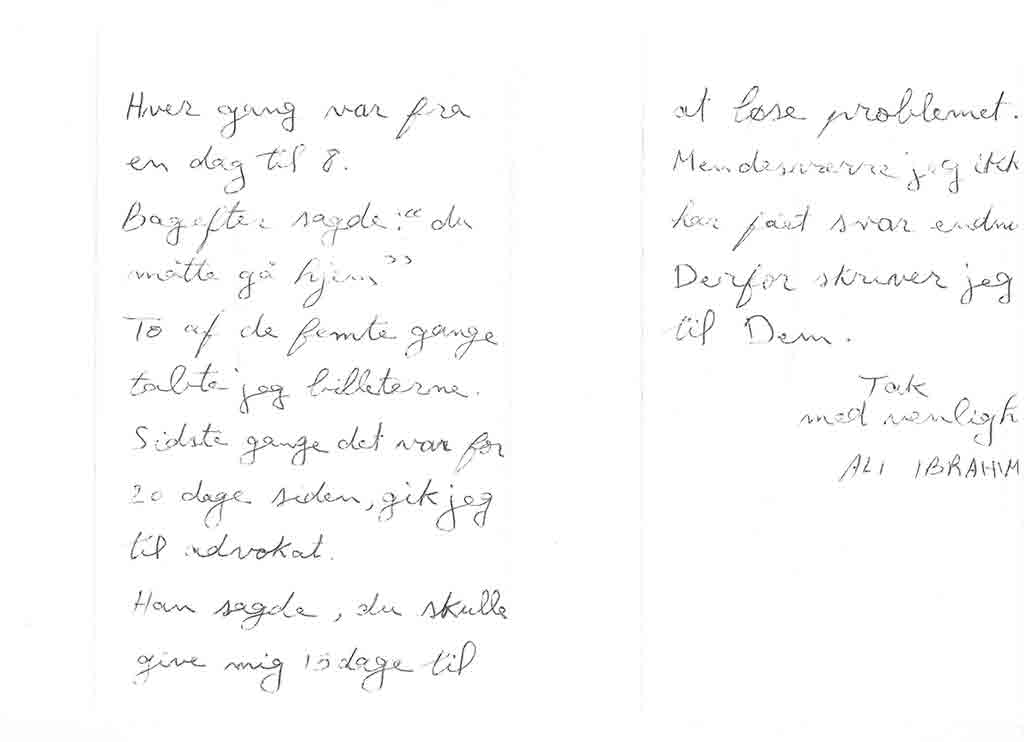 Hver gang var fra
en dag til 8.
Bagefter sagde: "du
måtte gå hjem"
To af de femte gange
tabte jeg billeterne.
Sidste gange det var for
20 dage siden, gik jeg
til advokat.
Han sagde, du skulle
give mig 15 dage til
at løse problemet.
Men desværre jeg ikk
har fået svar endnu
Derfor skriver jeg
til Dem.
Tak
med venligh
ALI IBRAHIM